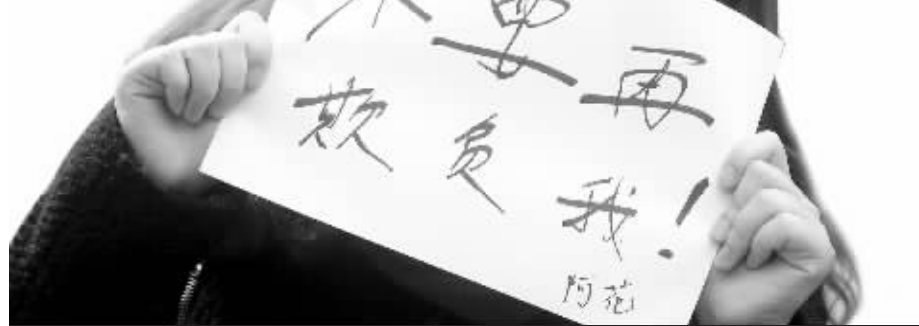 不要再
欺负
我!
阿范